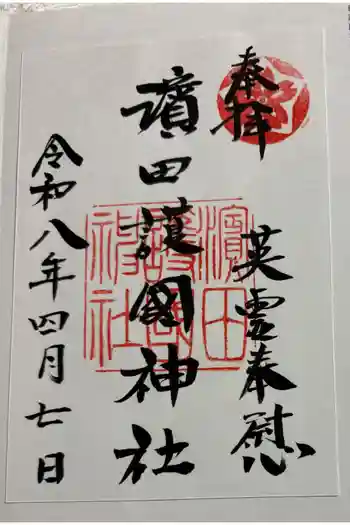 奉拝
英霊奉慰
濵田護國神社
濵田
護國
神社
令和八年四月七日